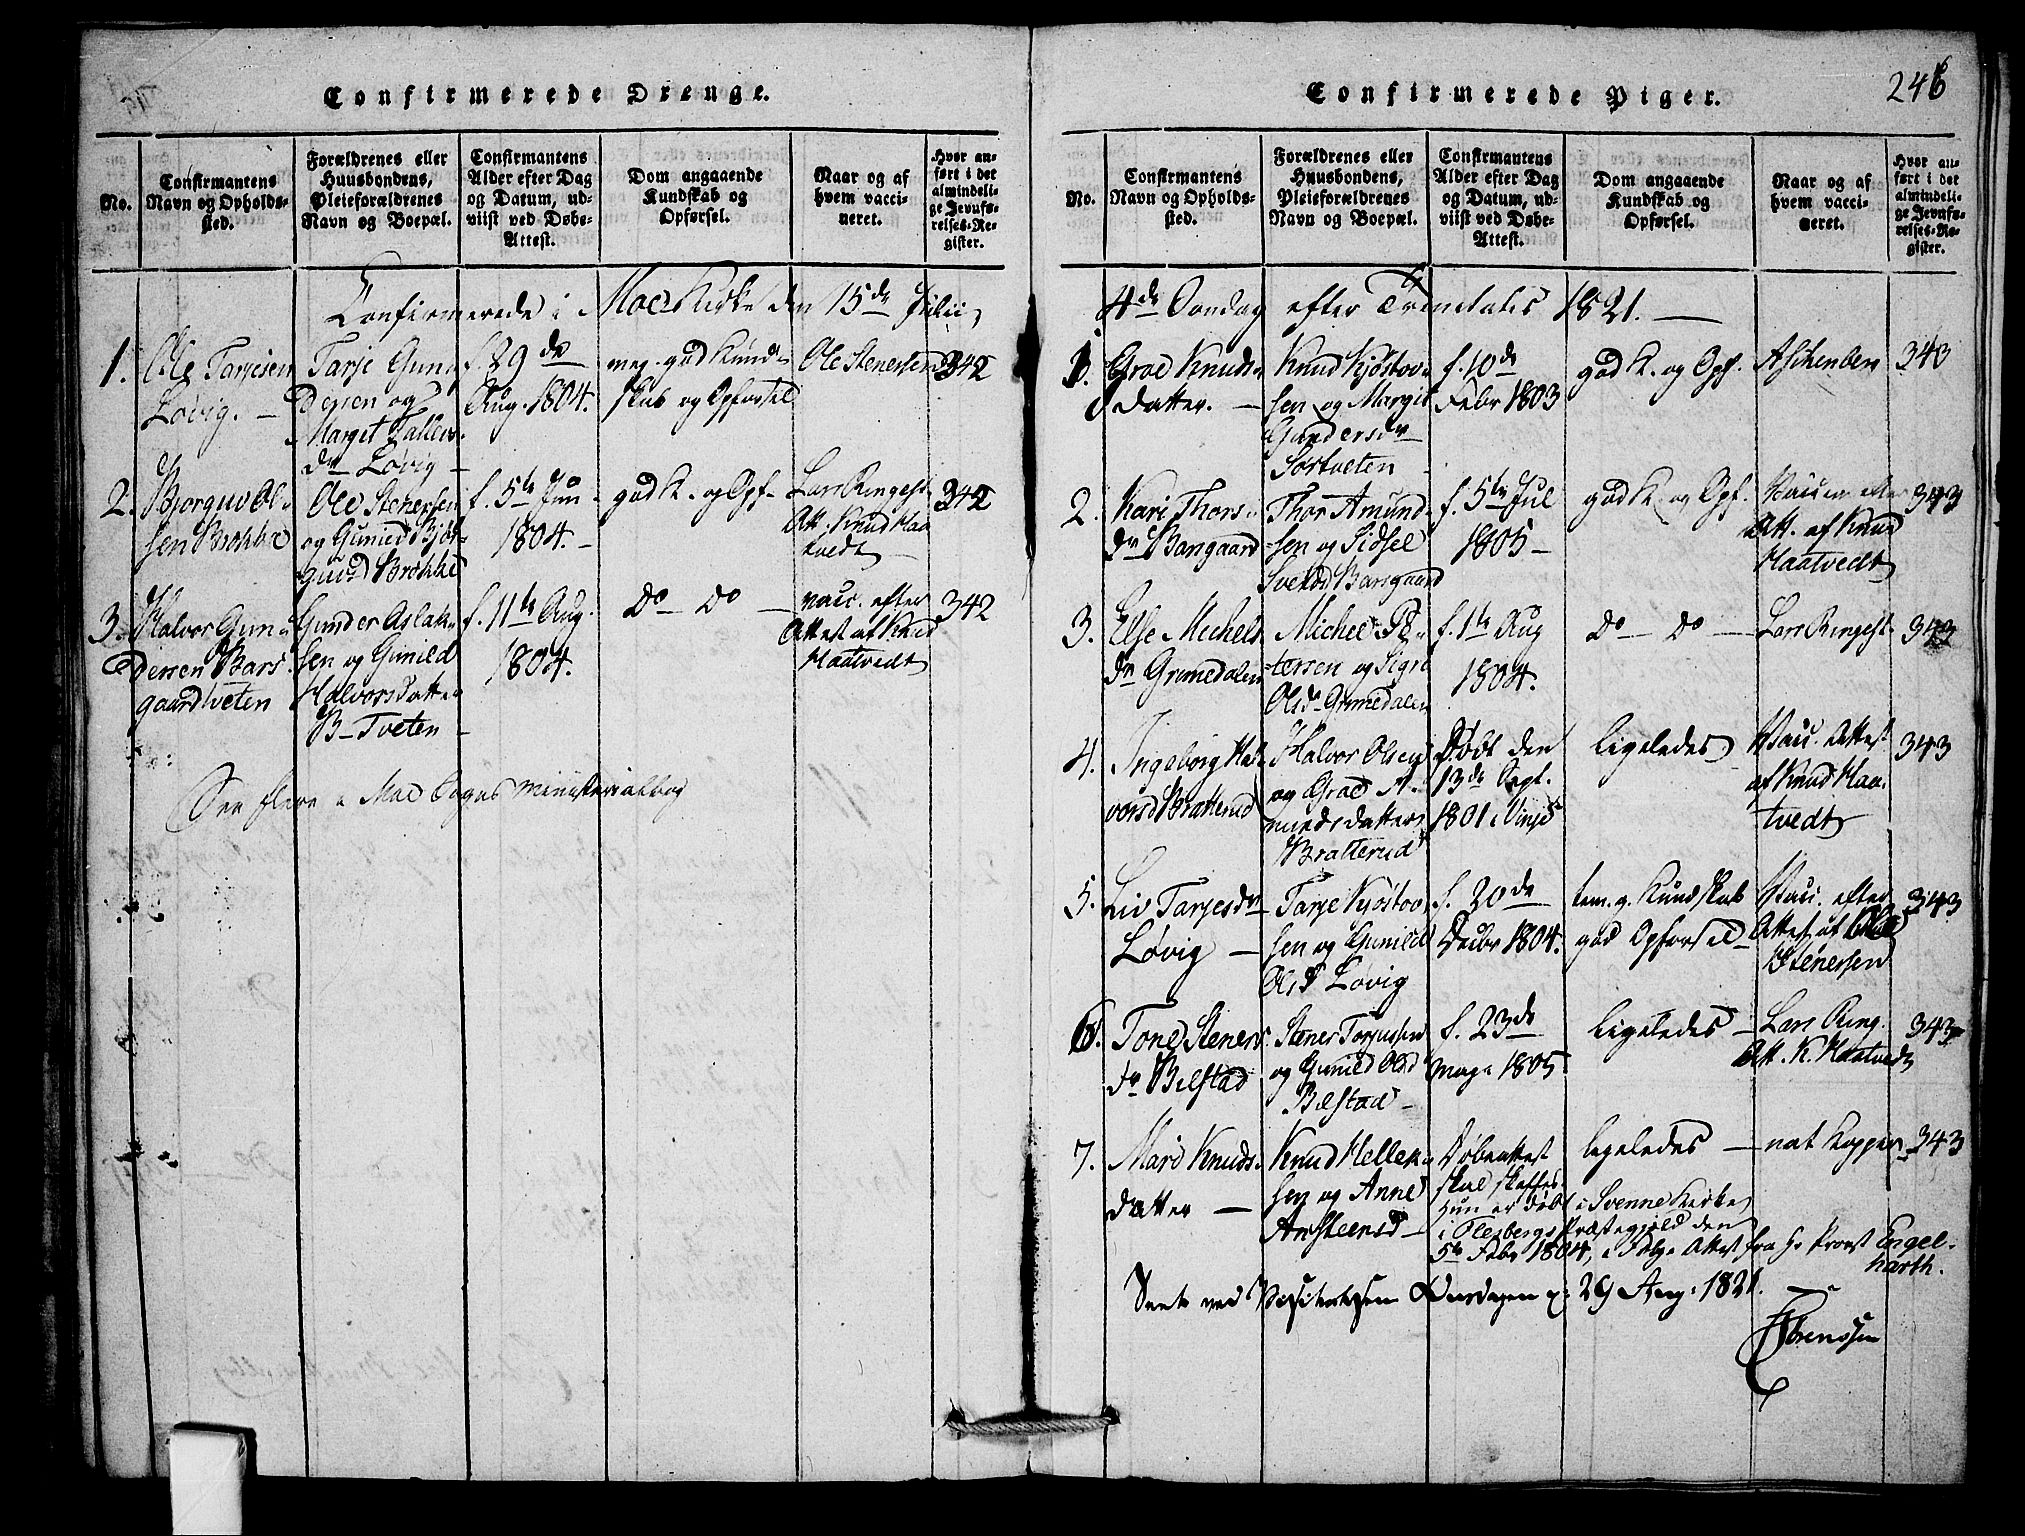 Confirmerede Drenge.
No.
Confirmantens
Navn og Opholds-
sted.
Forældrenes eller
Huusbondens,
Pleieforældrenes
Navn og Boepæl.
Confirmantens
Alder efter Dag
og Datum, ud-
viist ved Døbe-
Attest.
Dom angaaende
Kundskab og
Opførsel.
Naar og af
hvem vacci-
neret.
Hvor an-
ført i det
almindeli-
ge Jevnfø-
relses-Re-
gister.
Confirmerede i Moe Kirke den 15de Julii
1.
Ole Tarjesen
Løvig. -
Tarje Gun-
dersen og
Marget Tallevs
dr Løvig -
f. 29de
Aug. 1804.
meg. god Kund-
skab og Opførsel
Ole Stenersen
342
2.
Bjorguv Ol-
sen Brokke
Ole Stenersen
og Gunild Bjør-
guvd Brokke
f. 5te Jun
1804. -
god K. og Opf-
Lars Ringest.
Att. Knud Haa
tvedt
342
3.
Halvor Gun-
dersen Bars-
gaardtveten
Gunder Aslak-
sen og Gunild
Halvorsdatter
B- Tveten -
f. 11te Aug.
1804.
do - do -
vacc. efter
Attest af Knud
Haatvedt
342
See flere i Moe Sogns Ministerialbog
Confirmerede Piger.
246
No.
Confirmantens
Navn og Opholds-
sted.
Forældrenes eller
Huusbondens,
Pleieforældrenes
Navn og Boepæl.
Confirmantens
Alder efter Dag
og Datum, ud-
viist ved Døbe-
Attest.
Dom angaaende
Kundskab og
Opførsel.
Naar og af
hvem vacci-
neret.
Hvor an-
ført i det
almindeli-
ge Jevnfø-
relses-Re-
gister.
4de Søndag efter Trinitatis 1821. -
1.
Groe Knuds-
datter. -
Knud Kjøstov-
sen og Margit
Gundersdr
Sørtveten
f. 10de
Febr 1803
god K. og Opf.
Aschenben
343
2.
Kari Thors-
dr Barsgaard
Thor Amund-
sen og Sidsel
Svends Barsgaard
f. 5te Jul
1805 -
god K. og Opf.
Vacc. efter
Att. af Knud
Haatvedt
343
3.
Else Michels
dr Grimedalen
Michel Pe-
tersen og Sigri
Olsd. Grimedalen
f. 1te Aug
1804.
do - do -
Lars Ringest.
343
4.
Ingeborg Hal-
vorsd Bratterud
Halvor Olsen
og Groe A-
mundsdatter
Bratterud
Døbt den
13de Sept.
1801 i Vinje
ligeledes
Vacc. Attest
af Knud Haa-
tvedt
343
5.
Liv Tarjesdr
Løvig -
Tarje Kjøstov-
sen og Gunild
Olsd Løvig
f. 20de
Decbr 1804.
tem. g. Kundskab
god Opførsel -
Vacc. efter
Attest af Ole
Stenersen
343
6.
Tone Steners
dr Bilstad
Stener Torjusen
og Gunild Olsd
Bilstad -
f. 23de
May 1805
ligeledes -
Lars Ring.
Att. K. Haatvedt
343
7.
Mari Knuds-
datter -
Knud Hellek-
sen og Anne
Ansteensd -
Døbeattest
skal skaffes.
Hun er døbt i Svenne Kirke
i Flesbergs Præstegjeld den
5te Febr 1804, i Følge Attest fra Hr Provst Engel-
harth.
ligeledes -
nat Kopper
343
Seet ved Visitatsen Onsdagen d: 29 Aug: 1821.
Sörenssen